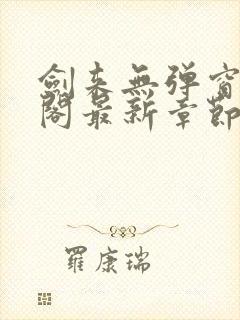 劍來無彈窗
閣最新章節
羅康瑞